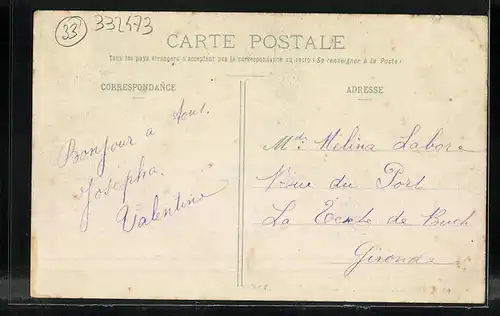 33 332473
CARTE POSTALE
Tous les pays étrangers n'acceptent pas la correspondance au recto (Se renseigner à la Poste)
CORRESPONDANCE
ADRESSE
Bonjour a tous.
Josépha.
Valentine
Mde Mélina Labore
Rue du Port
La Teste de Buch
Gironde